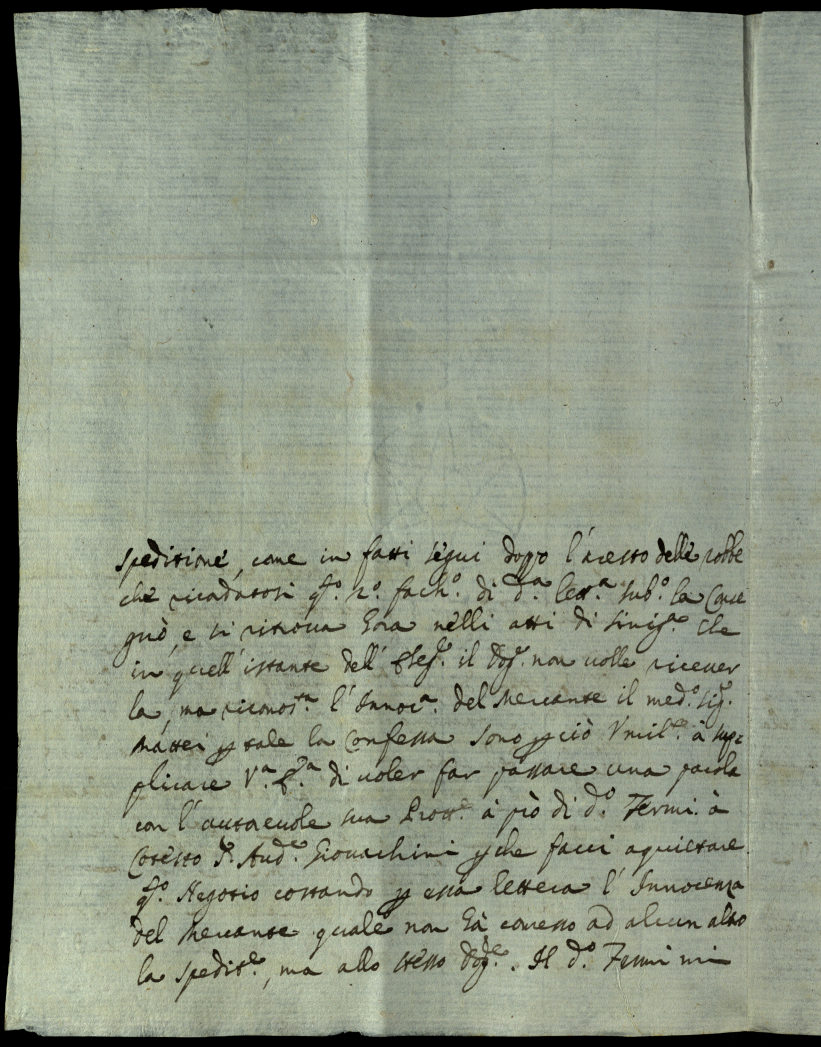 speditione, come in fatti seguì doppo l'aresto delle robbe
che ricadutosi q.to s.o fach.o di d.a lett.a sub.o la Conse
gnò, e si ritrova hora nelli atti di Sinig.a che
in quell'istante dell' il non volle ricever
la, ma riconos.ta l'Innoc.a del Mercante il med.o Sig.
Mattei p tale la Confessa sono p ciò Vmil.te à sup=
plicare V.a E.za di voler far passare una parola
con l'autorevole sua Prott.e à prò di d.o Fermi. à
Cotesto S. Aud.e Giovachini p che facci aquietare
q.to Negotio costando p essa lettera l'Innocenza
del Mercante quale non hà concesso ad alcun altro
la spedit.e, ma allo stesso. Il d.o Fermi mi